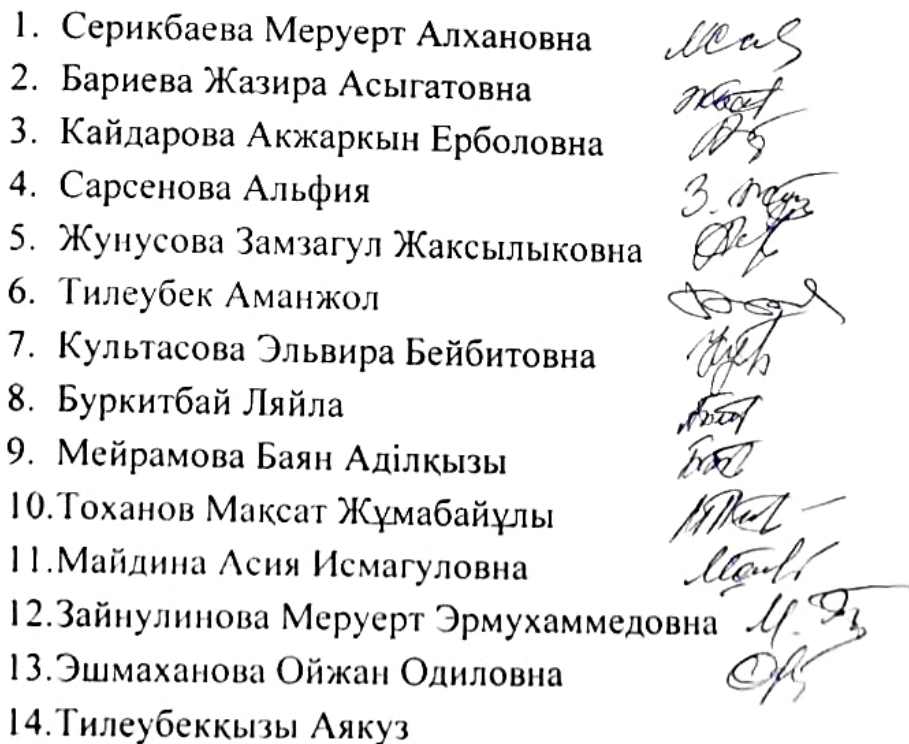 1. Серикбаева Меруерт Алхановна
2. Бариева Жазира Асыгатовна
3. Кайдарова Акжаркын Ерболовна
4. Сарсенова Альфия
5. Жунусова Замзагул Жаксылыковна
6. Тилеубек Аманжол
7. Культасова Эльвира Бейбитовна
8. Буркитбай Ляйла
9. Мейрамова Баян Аділқызы
10.Тоханов Мақсат Жұмабайұлы
11.Майдина Асия Исмагуловна
12.Зайнулинова Меруерт Эрмухаммедовна
13.Эшмаханова Ойжан Одиловна
14.Тилеубекқызы Аякуз